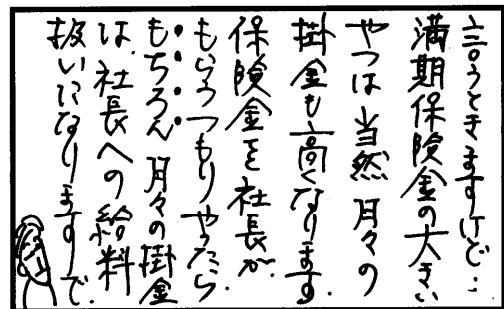 言うときますけど‥
満期保険金の大きい
やつは当然月々の
掛金も高くなります.
保険金を社長が
もらうつもりやったら
もちろん月々の掛金
は、社長への給料
扱いになりますで.